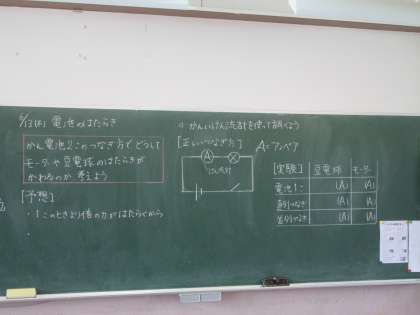 6/13(木) 電池のはたらき
かん電池2このつなぎ方で どうして
モーターや豆電球のはたらきが
かわるのか 考えよう
[予想]
・1このときより倍の力がはたらくから
・
かんいけん流計を使って調べよう
[正しいつなぎ方]
A=アンペア
A
けん流計
[実験] 豆電球 モーター
電池1こ (A) (A)
直列つなぎ (A) (A)
並列つなぎ (A) (A)